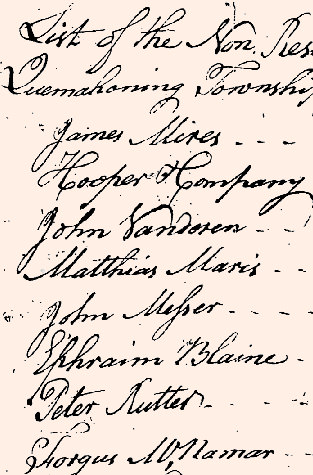 List of the Non. Res
Quemahoning Township
James Mires - - -
Hooper & Company
John Vanderen - -
Matthias Maris - -
John Messer - - - -
Ephraim Blaine -
Peter Rutter - - -
Forgus McNamar - -